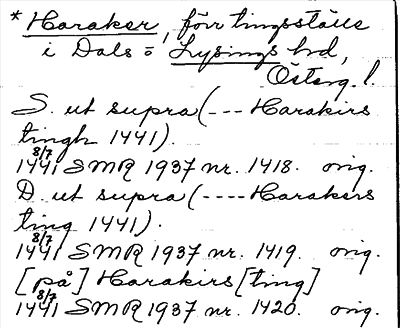 * Haraker, förr tingsställe
i Dals o Lysings hrd,
Österg. l.
S. ut supra (--- Harakirs
tingh 1441).
1441 8/7 SMR 1937 nr. 1418. orig.
D. ut supra (---- Harakers
ting 1441).
1441 8/7 SMR 1937 nr. 1419. orig.
[på] Harakirs [ting]
1441 8/7 SMR 1937 nr. 1420. orig.